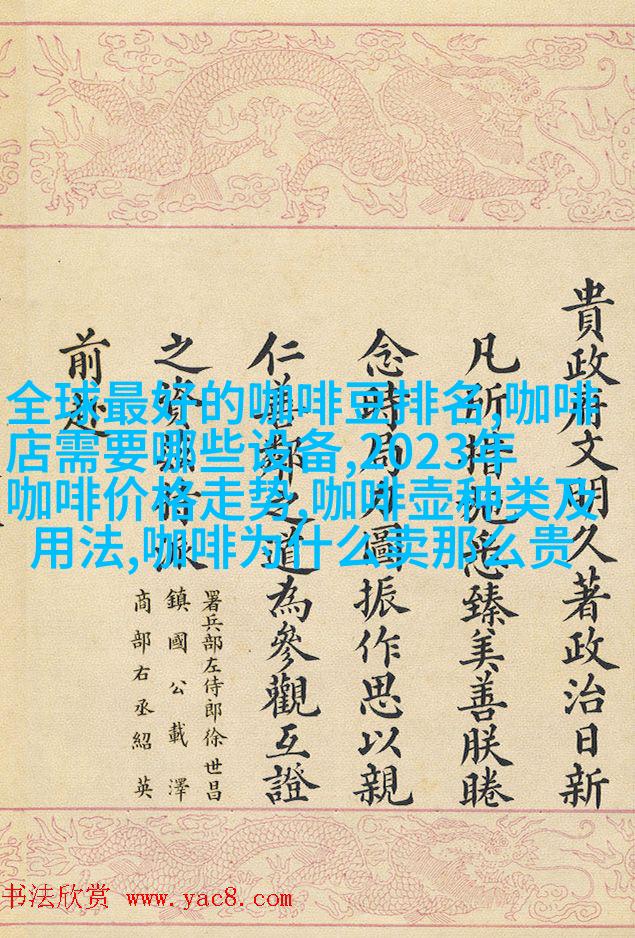 全球最好的咖啡豆排名,咖啡
店需要哪些设备,2023年
咖啡价格走势,咖啡壶种类及
用法,咖啡为什么卖那么贵
貴政府文明久著政治日新
凡所措施悉臻美善朕睠
念時局力圖振作思以親
仁善鄰之道為參觀互證
之資茲特派
署兵部左侍郎徐世昌
鎮國公載澤
商部右丞紹英
前赴
书法欣赏 www.yac8.com